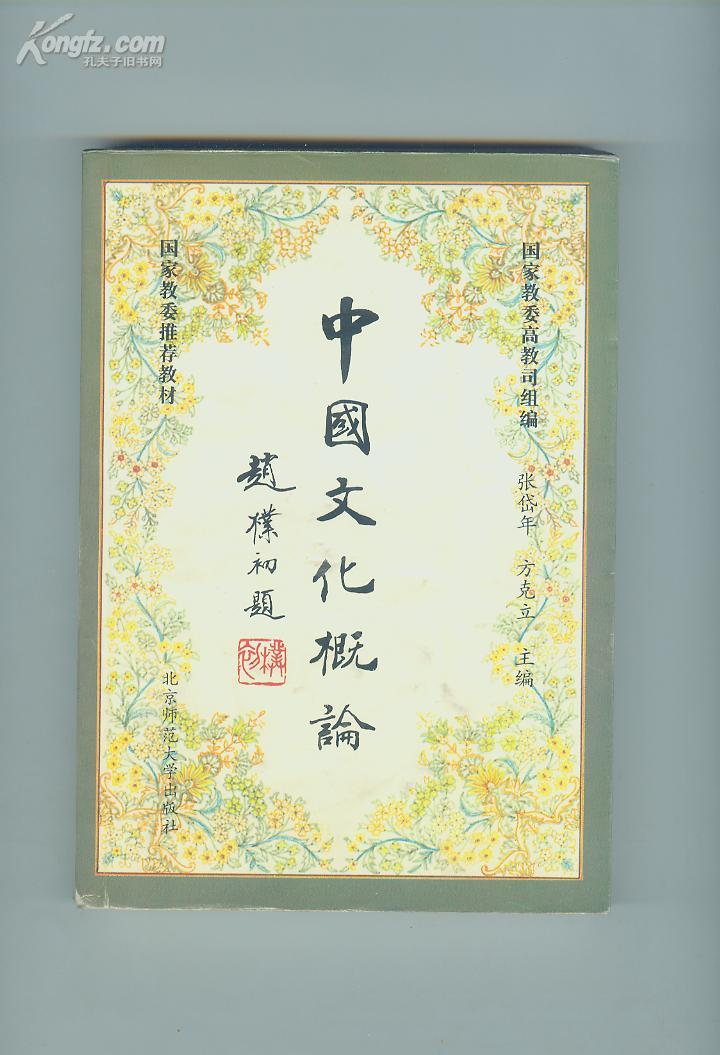 Kongfz.com
孔夫子旧书网
国家教委高教司组编
张岱年 方克立 主编
中國文化概論
趙樸初題
樸初
国家教委推荐教材
北京师范大学出版社